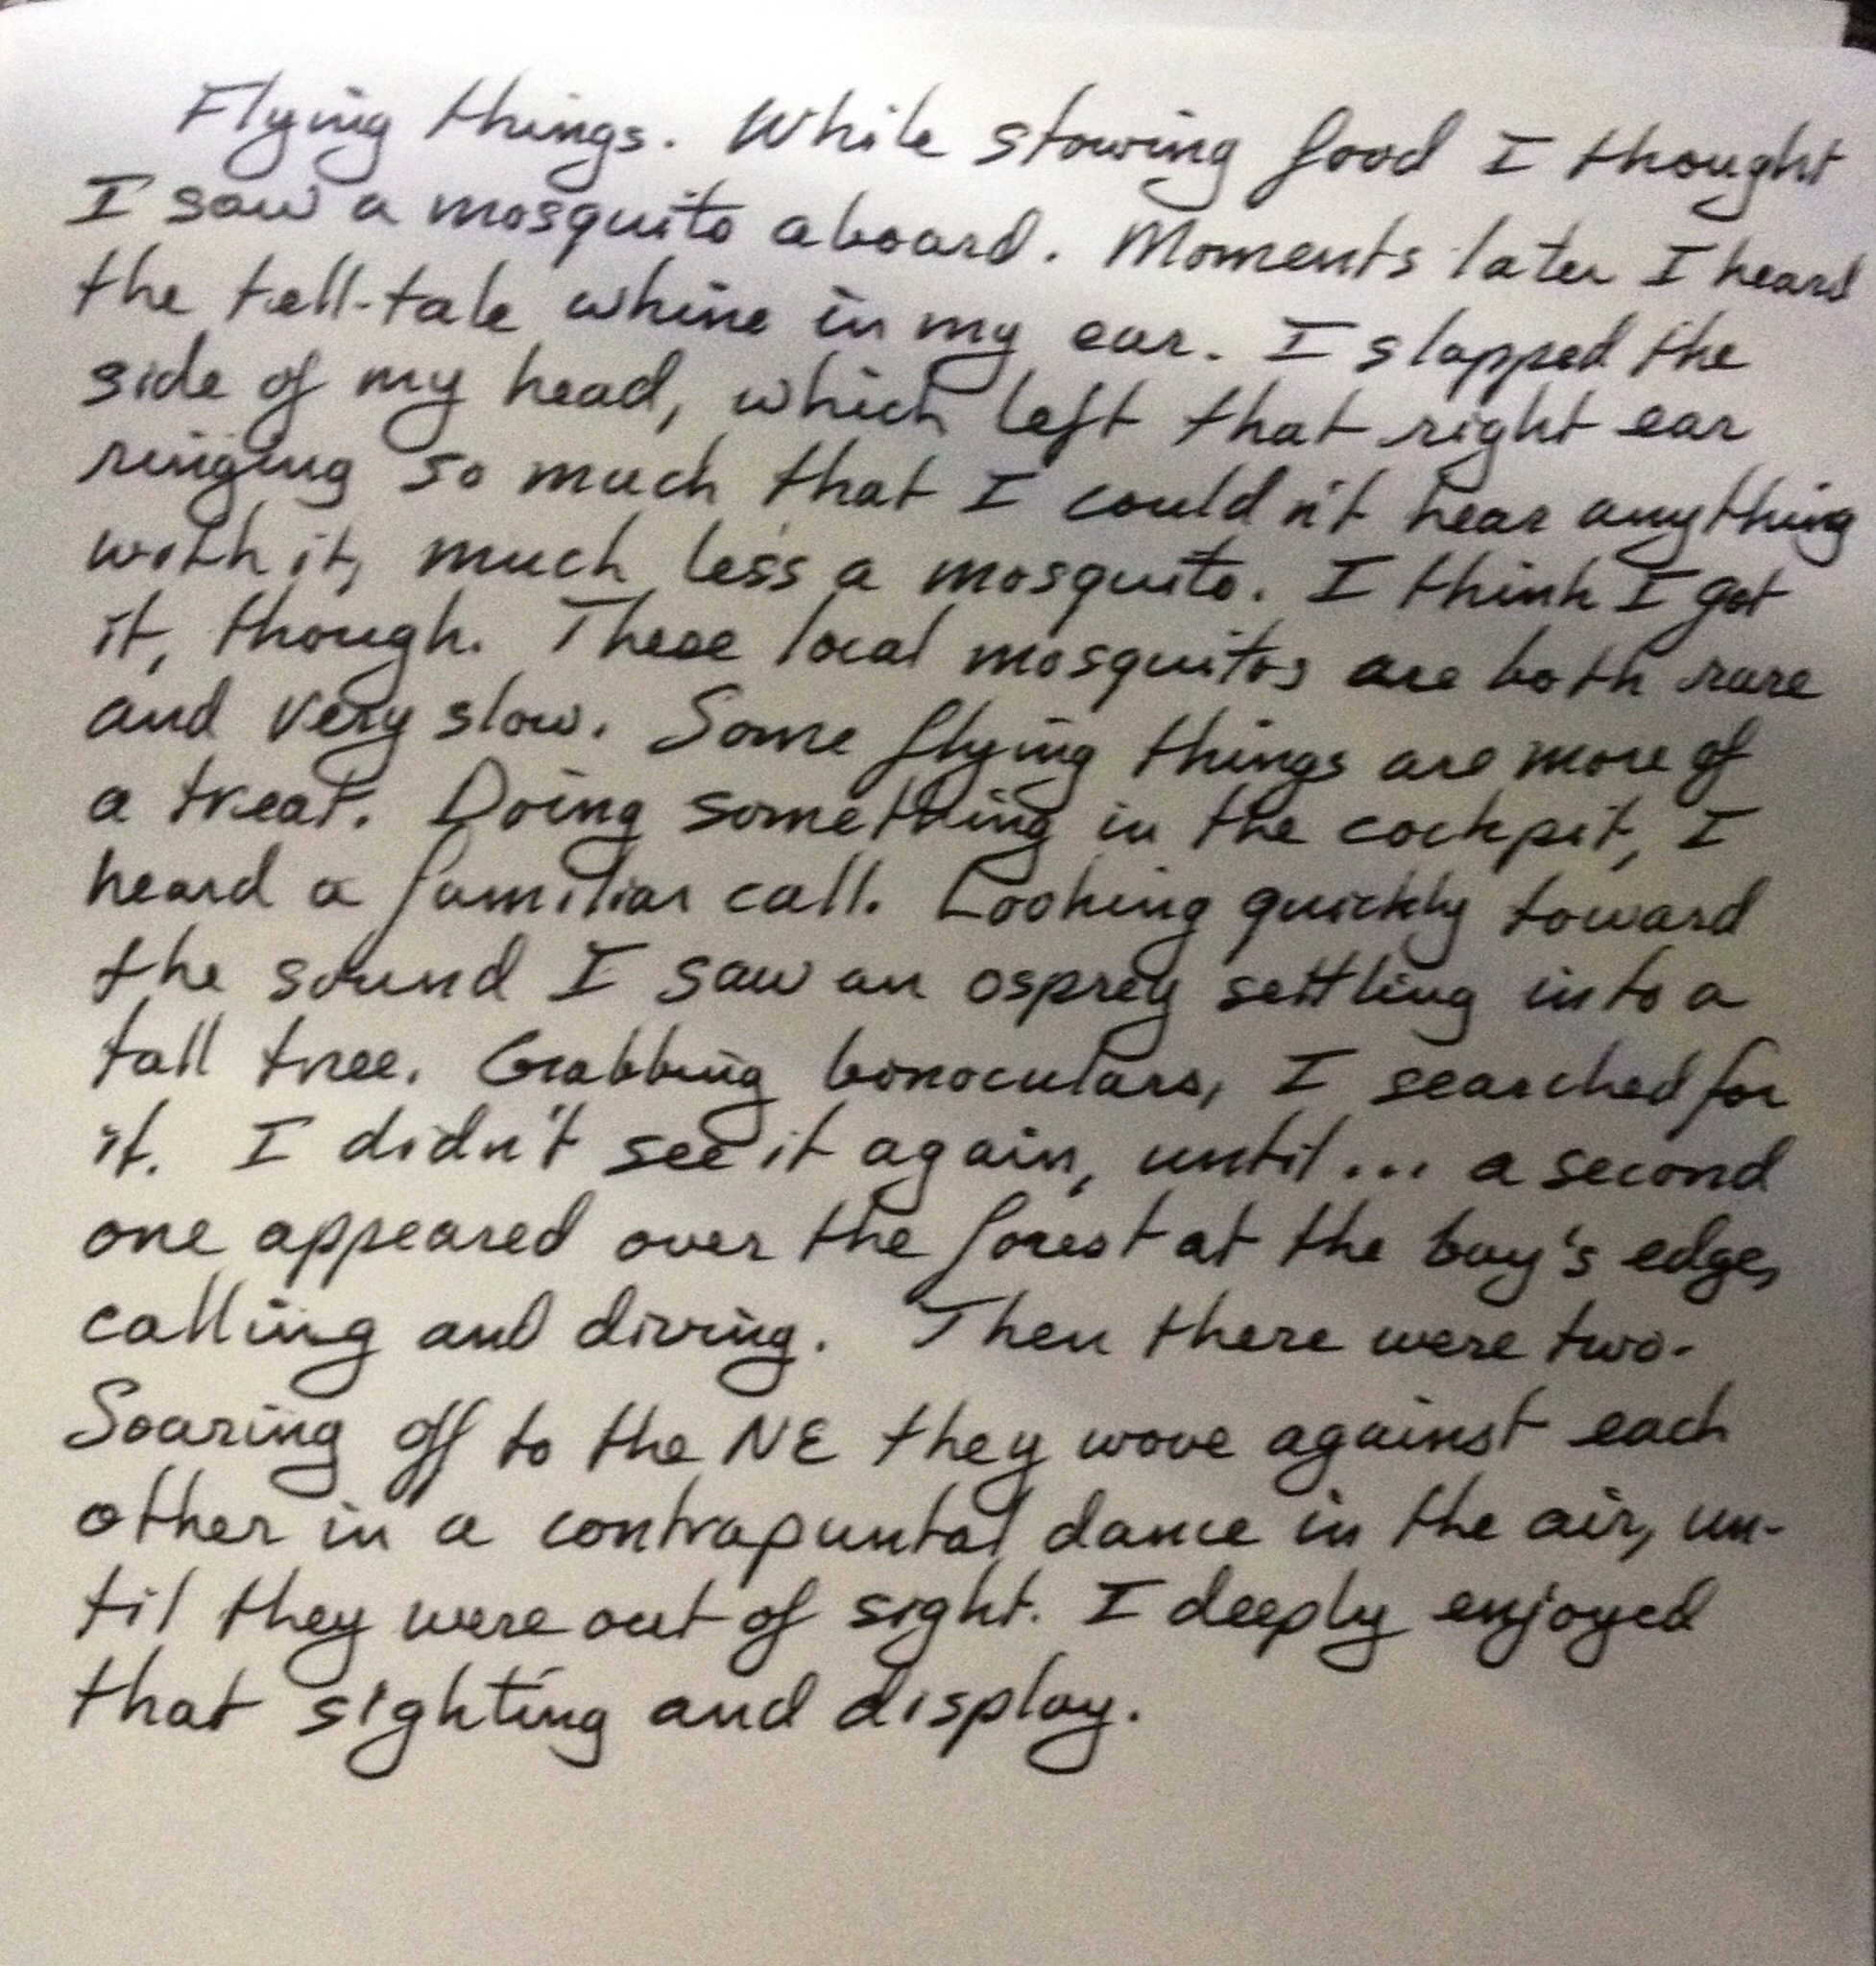 Flying things. While stowing food I thought
I saw a mosquito aboard. Moments later I heard
the tell-tale whine in my ear. I slapped the
side of my head, which left that right ear
ringing so much that I couldn't hear anything
with it, much less a mosquito. I think I got
it, though. These local mosquitos are both rare
and very slow. Some flying things are more of
a treat. Doing something in the cockpit, I
heard a familiar call. Looking quickly toward
the sound I saw an osprey settling into a
tall tree. Grabbing binoculars, I searched for
it. I didn't see it again, until... a second
one appeared over the forest at the bay's edge,
calling and diving. Then there were two.
Soaring off to the NE they wove against each
other in a contrapuntal dance in the air, un-
til they were out of sight. I deeply enjoyed
that sighting and display.